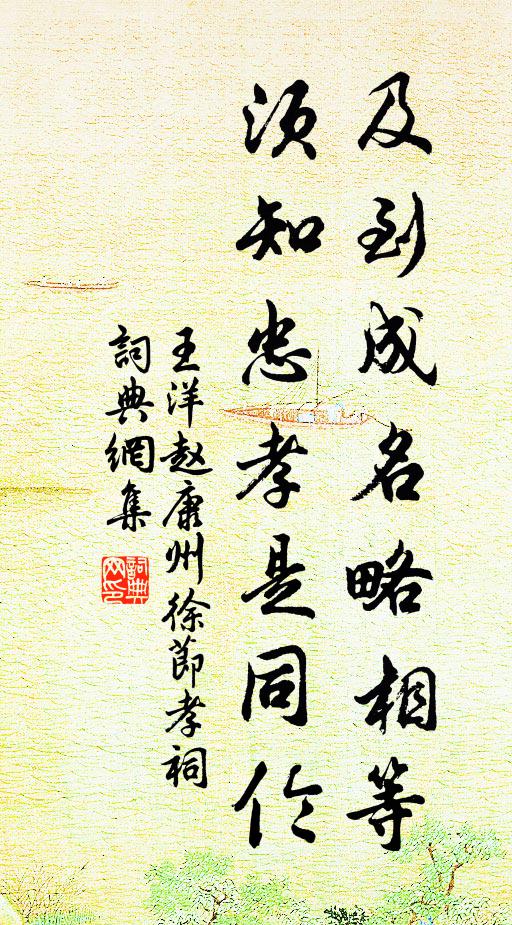 及到成名略相等
须知忠孝是同伦
王洋赵康州徐节孝祠
詞典網集
詞典网印